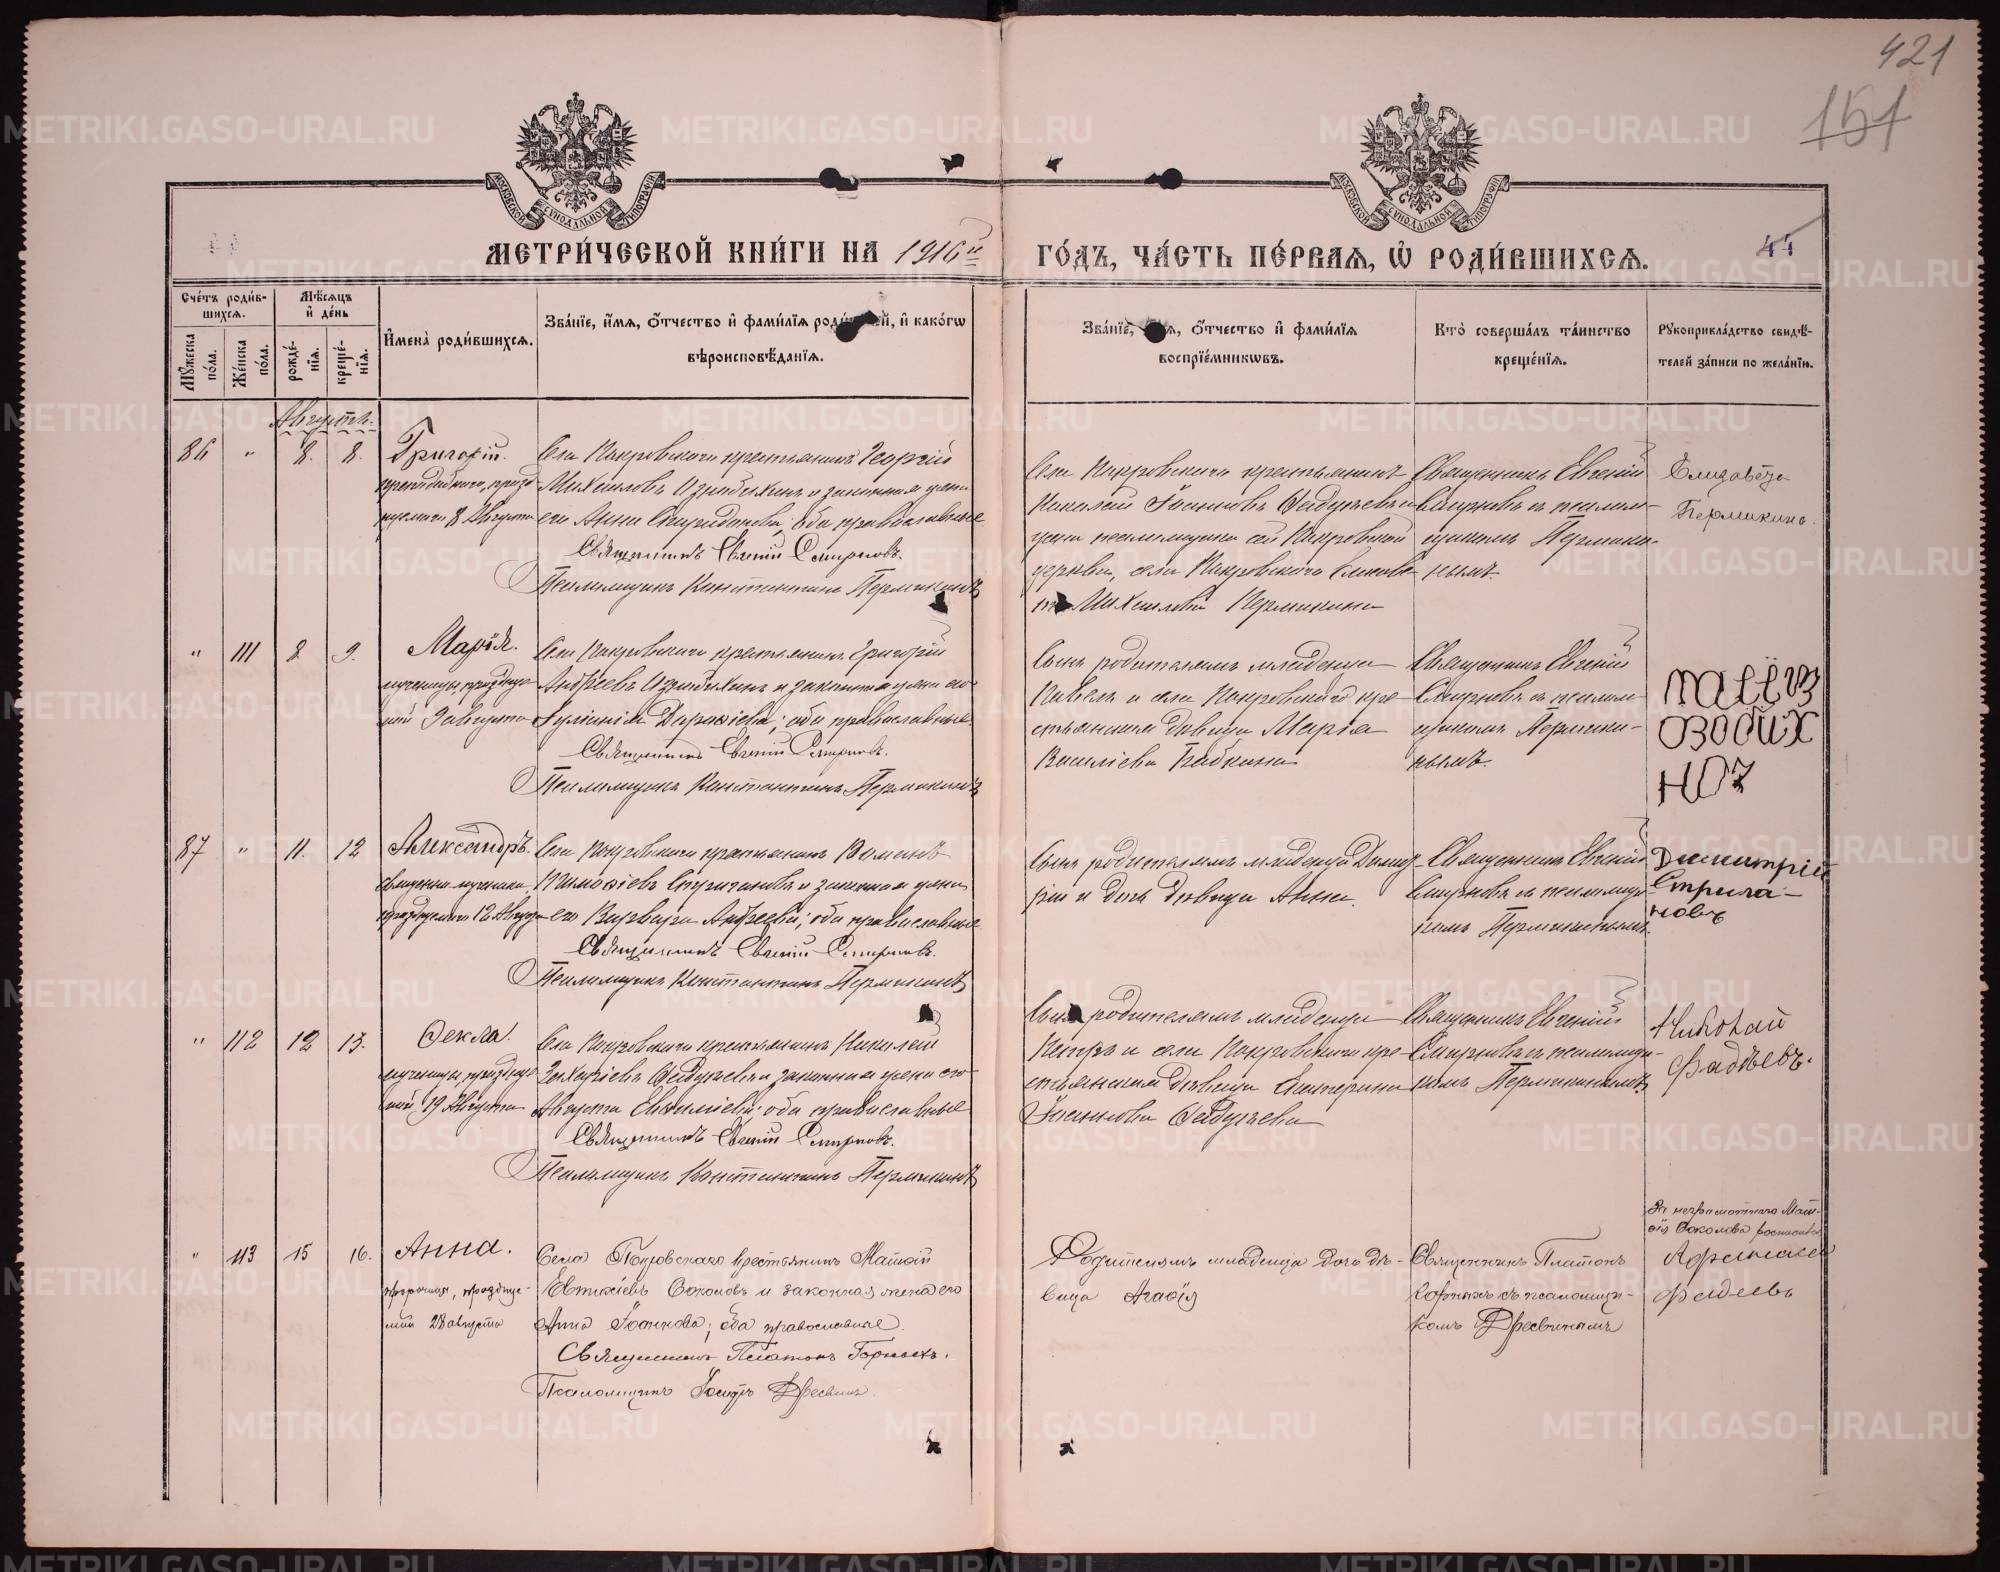 421
151
МОСКОВСКОЙ СѴНОДАЛЬНОЙ ТИПОГРАФІИ
МОСКОВСКОЙ СѴНОДАЛЬНОЙ ТИПОГРАФІИ
МЕТРИ́ЧЕСКОЙ КНИ́ГИ НА 1916й ГО́ДЪ, ЧА́СТЬ ПЕ́РВАѦ, Ѡ҆ РОДИ́ВШИХСѦ.
44
Сче́тъ роди́вшихсѧ.
Мꙋ́жеска по́ла.
Же́нска по́ла.
Мѣ́сѧцъ и҆ де́нь
рожде́нїѧ.
креще́нїѧ.
И҆мена̀ роди́вшихсѧ.
Зва́нїе, и҆́мѧ, ѻ҆́тчество и҆ фами́лїѧ роди́телей, и҆ како́гѡ
вѣроисповѣ́данїѧ.
Зва́нїе, и҆́мѧ, ѻ҆́тчество и҆ фами́лїѧ
воспрїе́мникѡвъ.
Кто̀ соверша́лъ та́инство
креще́нїѧ.
Рꙋкоприкла́дство свидѣ́-
телей за́писи по жела́нїю.
Августъ.
86 " 8. 8. Григорій.
Села Покровскаго крестьянинъ Георгій
Михаиловъ Изюбихинъ и законная жена
его Анна Спиридонова; оба православные
Священникъ Евгеній Смирновъ.
Псаломщикъ Константинъ Пермикинъ
Села Покровскаго крестьянинъ
Николай Іоанновъ Фадѣевъ и
жена псаломщика сей Покровской
церкви, села Покровскаго Елизаве-
та Михаилова Пермикина
Священникъ Евгеній
Смирновъ съ псалом-
щикомъ Пермики-
нымъ.
Елизавета
Пермикина
" 111 8. 9. Марія.
мученицы, празднуе-
мой 9 августа
Села Покровскаго крестьянинъ Григорій
Андреевъ Изюбихинъ и законная жена его
оба православные
Священникъ Евгеній Смирновъ.
Псаломщикъ Константинъ Пермикинъ
Сынъ родителямъ младенца
Павелъ и села Покровскаго кре-
стьянина дѣвица Марія
Василіева Бабкина
Священникъ Евгеній
Смирновъ съ псалом-
щикомъ Пермики-
нымъ.
87 " 11. 12 Александръ.
священно-мученика,
празднуемаго 12 Августа
Села Покровскаго крестьянинъ Романъ
и законная жена
его Варвара Андреева; оба православные
Священникъ Евгеній Смирновъ.
Псаломщикъ Константинъ Пермикинъ
Сынъ родителямъ младенца Димит-
рій и дочь дѣвица Анна.
Священникъ Евгеній
Смирновъ съ псаломщи-
комъ Пермикинымъ.
Димитрій
Стрига-
новъ
" 112 12 13. Ѳекла.
мученицы, празднуе-
мой 19 Августа
Села Покровскаго крестьянинъ Николай
Захаріевъ Фадѣевъ и законная жена его
Августа оба православные
Священникъ Евгеній Смирновъ.
Псаломщикъ Константинъ Пермикинъ
Сынъ родителямъ младенца
Петръ и села Покровскаго кре-
стьянина дѣвица Екатерина
Іоаннова Фадѣева
Священникъ Евгеній
Смирновъ съ псаломщи-
комъ Пермикинымъ
Николай
Фадѣевъ.
" 113 15 16. Анна.
пророчицы, праздуе-
мой 28 августа
Села Покровскаго крестьянинъ Матѳій
Евтихіевъ Соколовъ и законная жена его
Анна Іоаннова; оба православные.
Священникъ Платонъ Горныхъ.
Псаломщикъ
Родителямъ младенца дочь дѣ-
вица Агаѳія
Священникъ Платонъ
Горныхъ съ псаломщи-
комъ
За неграмотнаго Мат-
ѳія Соколова росписался
Афанасій
Фадеевъ
METRIKI.GASO-URAL.RU